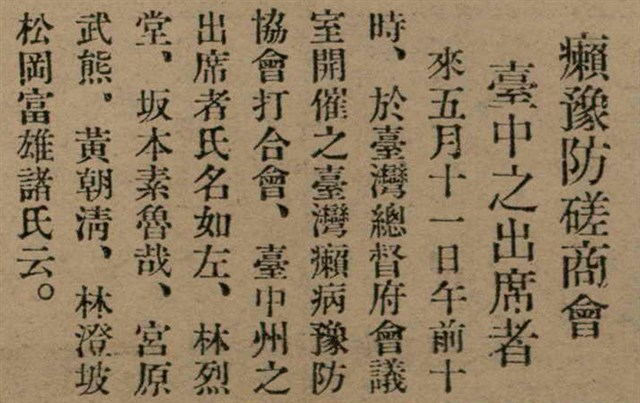 癩豫防磋商會
臺中之出席者
來五月十一日午前十
時、於臺灣總督府會議
室開催之臺灣癩病豫防
協會打合會、臺中州之
出席者氏名如左、林烈
堂、坂本素魯哉、宮原
武熊、黃朝淸、林澄坡
松岡富雄諸氏云。